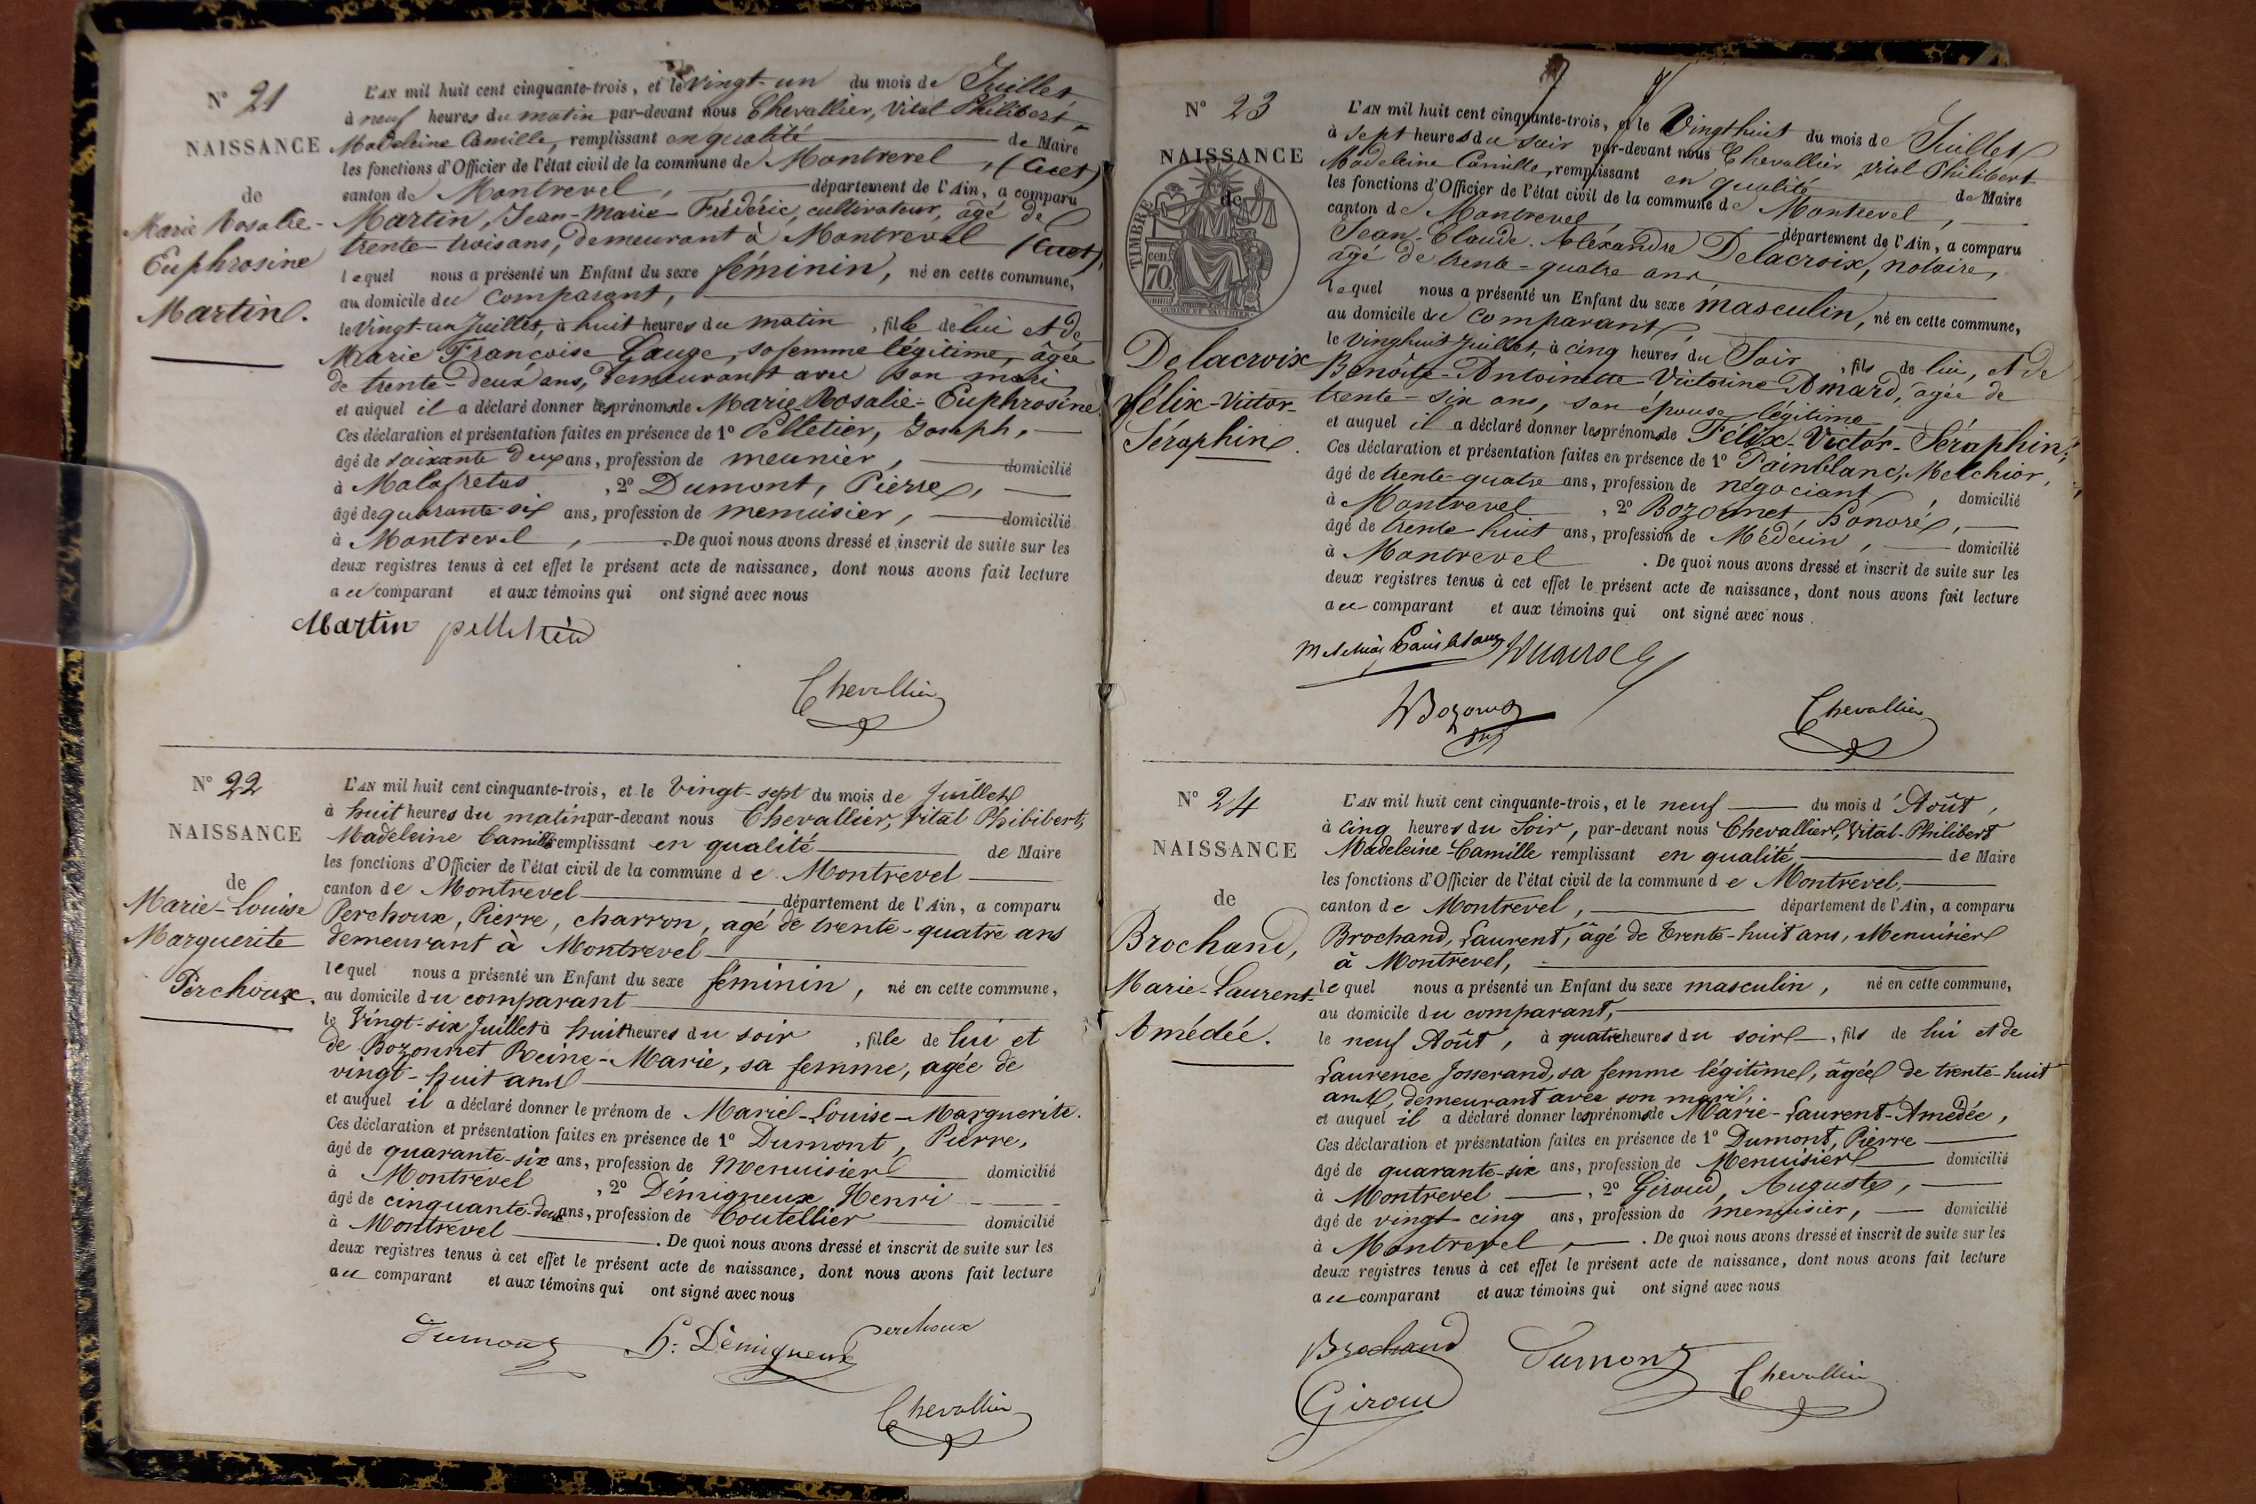 N° 21
NAISSANCE
de
Marie Rosalie-
Euphrosine
Martin.
L'AN mil huit cent cinquante-trois, et le vingt-un du mois de Juillet
à neuf heures du matin par-devant nous Chevallier, Vital Philibert,
Madeleine Camille, remplissant en qualité de Maire
les fonctions d'Officier de l'état civil de la commune de Montrevel, (Cuet)
canton de Montrevel, département de l'Ain, a comparu
Martin, Jean-Marie-Frédéric, cultivateur, âgé de
trente-trois ans, demeurant à Montrevel (Cuet),
lequel nous a présenté un Enfant du sexe féminin, né en cette commune,
au domicile du comparant,
le Vingt-un Juillet, à huit heures du matin, fille de lui et de
Marie Françoise Gauge, sa femme légitime, âgée
de trente-deux ans, demeurant avec son mari
et auquel il a déclaré donner les prénoms de Marie-Rosalie-Euphrosine
Ces déclaration et présentation faites en présence de 1° Pelletier, Joseph,
âgé de soixante deux ans, profession de meunier, domicilié
à Malafretas, 2° Dumont, Pierre,
âgé de quarante-six ans, profession de menuisier, domicilié
à Montrevel, . De quoi nous avons dressé et inscrit de suite sur les
deux registres tenus à cet effet le présent acte de naissance, dont nous avons fait lecture
au comparant et aux témoins qui ont signé avec nous
Martin pelletier
Chevallier
N° 22
NAISSANCE
de
Marie-Louise
Marguerite
Perchoux.
L'AN mil huit cent cinquante-trois, et le Vingt-sept du mois de Juillet
à huit heures du matin par-devant nous Chevallier, Vital Philibert,
Madeleine Camille remplissant en qualité de Maire
les fonctions d'Officier de l'état civil de la commune de Montrevel
canton de Montrevel département de l'Ain, a comparu
Perchoux, Pierre, charron, agé de trente-quatre ans
demeurant à Montrevel
lequel nous a présenté un Enfant du sexe féminin, né en cette commune,
au domicile du comparant
le Vingt-six Juillet à huit heures du soir, fille de lui et
de Bozonnet Reine-Marie, sa femme, agée de
vingt-huit ans
et auquel il a déclaré donner le prénom de Marie-Louise-Marguerite.
Ces déclaration et présentation faites en présence de 1° Dumont, Pierre,
âgé de quarante-six ans, profession de Menuisier domicilié
à Montrevel, 2° Démigneux Henri
âgé de cinquante-deux ans, profession de Coutellier domicilié
à Montrevel . De quoi nous avons dressé et inscrit de suite sur les
deux registres tenus à cet effet le présent acte de naissance, dont nous avons fait lecture
au comparant et aux témoins qui ont signé avec nous
Dumont h. Démigneux Perchoux
Chevallier
N° 23
NAISSANCE
de
TIMBRE
70 cen.
Delacroix
félix-Victor-
Séraphin.
L'AN mil huit cent cinquante-trois, et le Vingt huit du mois de Juillet
à sept heures du soir par-devant nous Chevallier Vital Philibert
Madeleine Camille, remplissant en qualité de Maire
les fonctions d'Officier de l'état civil de la commune de Montrevel,
canton de Montrevel département de l'Ain, a comparu
Jean-Claude-Aléxandre Delacroix, notaire,
âgé de trente-quatre ans
lequel nous a présenté un Enfant du sexe masculin, né en cette commune,
au domicile du comparant,
le vingt huit Juillet, à cinq heures du Soir, fils de lui, et de
Benoîte-Antoinette-Victorine Amard, âgée de
trente-six ans, son épouse légitime
et auquel il a déclaré donner les prénoms de Félix-Victor-Séraphin,
Ces déclaration et présentation faites en présence de 1° Painblanc, Melchior,
âgé de trente-quatre ans, profession de négociant, domicilié
à Montrevel, 2° Bozonnet Honoré,
âgé de trente huit ans, profession de Médecin, domicilié
à Montrevel . De quoi nous avons dressé et inscrit de suite sur les
deux registres tenus à cet effet le présent acte de naissance, dont nous avons fait lecture
au comparant et aux témoins qui ont signé avec nous.
Melchior Painblanc
Chevallier
N° 24
NAISSANCE
de
Brochand,
Marie-Laurent-
Amédée.
L'AN mil huit cent cinquante-trois, et le neuf du mois d'Août,
à cinq heures du Soir, par-devant nous Chevallier, Vital-Philibert
Madeleine-Camille remplissant en qualité de Maire
les fonctions d'Officier de l'état civil de la commune de Montrevel,
canton de Montrevel, département de l'Ain, a comparu
Brochand, Laurent, âgé de trente-huit ans, Menuisier
à Montrevel,
lequel nous a présenté un Enfant du sexe masculin, né en cette commune,
au domicile du comparant,
le neuf Août, à quatre heures du soir, fils de lui et de
Laurence Josserand, sa femme légitime, âgée de trente-huit
ans, demeurant avec son mari,
et auquel il a déclaré donner les prénoms de Marie-Laurent-Amédée,
Ces déclaration et présentation faites en présence de 1° Dumont, Pierre
âgé de quarante-six ans, profession de Menuisier domicilié
à Montrevel, 2° Giroud, Auguste,
âgé de vingt-cinq ans, profession de menuisier, domicilié
à Montrevel, . De quoi nous avons dressé et inscrit de suite sur les
deux registres tenus à cet effet le présent acte de naissance, dont nous avons fait lecture
au comparant et aux témoins qui ont signé avec nous
Brochand Dumont Chevallier
Giroud